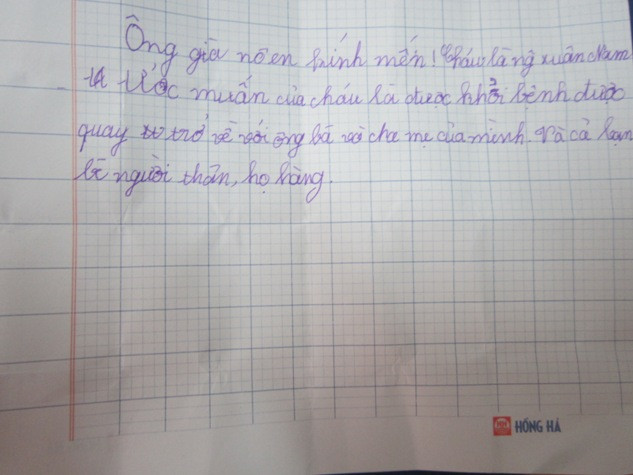 Ông già nôen kính mến! Cháu là ng xuân Nam
Ước muấn của cháu là được khỏi bệnh được
quay trở về với ông bà với cha mẹ của mình. Và cả bạn
bè người thân, họ hàng.
HỒNG HÀ